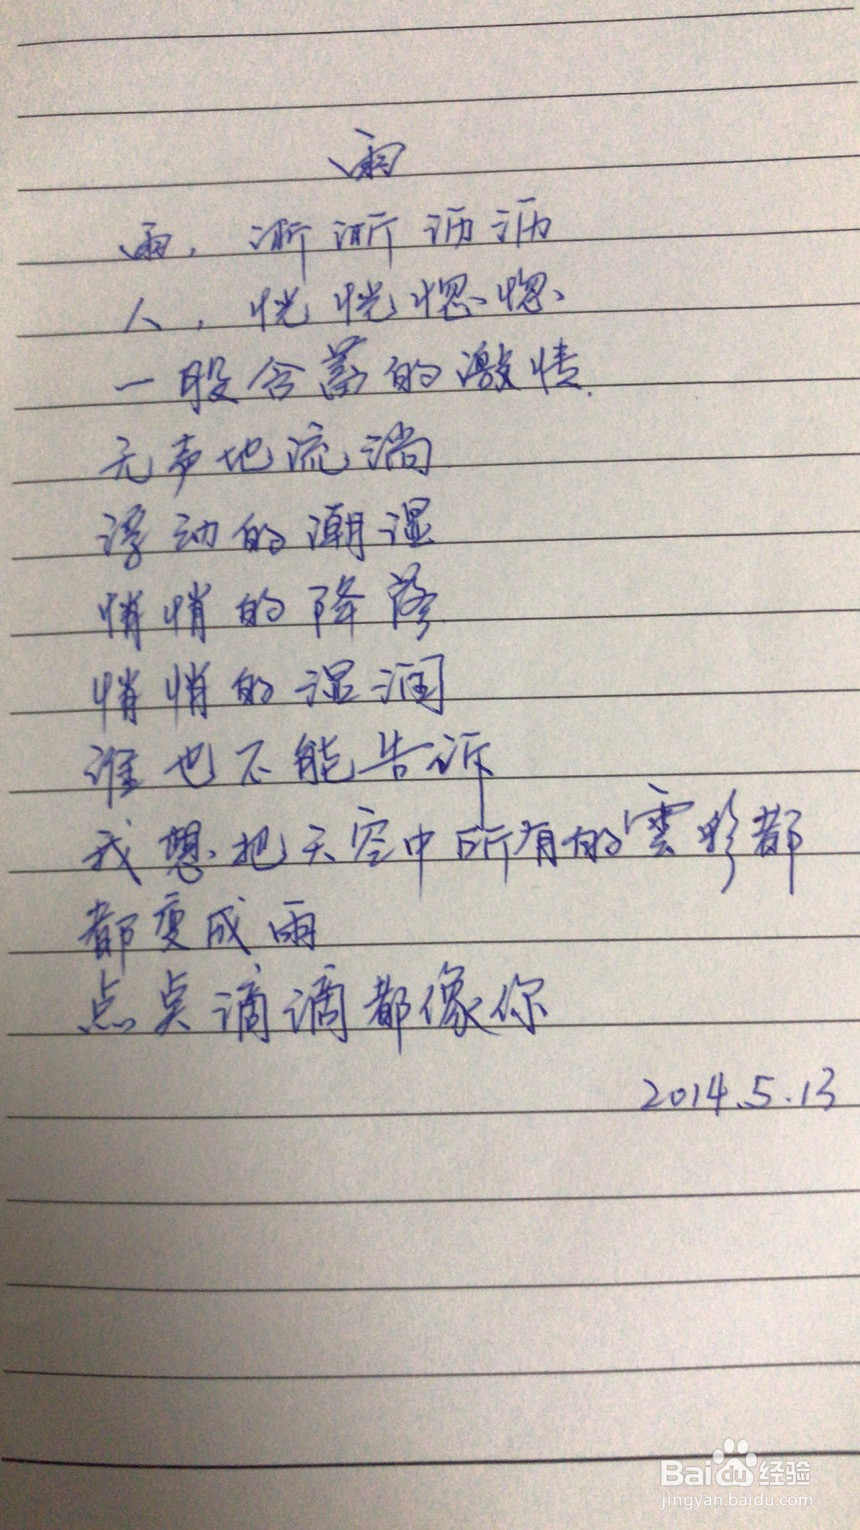 雨
雨，淅淅沥沥
人，恍恍惚惚
一股含蓄的激情
无声地流淌
浮动的潮湿
悄悄的降落
悄悄的湿润
谁也不能告诉
我想把天空中所有的雲彩都
都变成雨
点点滴滴都像你
2014.5.13
Baidu经验
jingyan.baidu.com